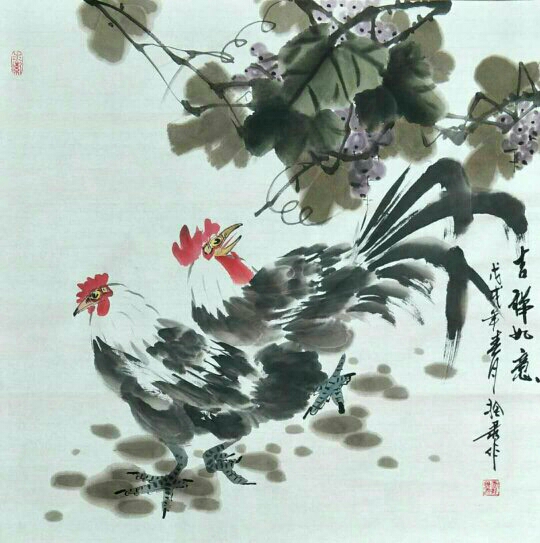 吉祥如意
戊戌年春月